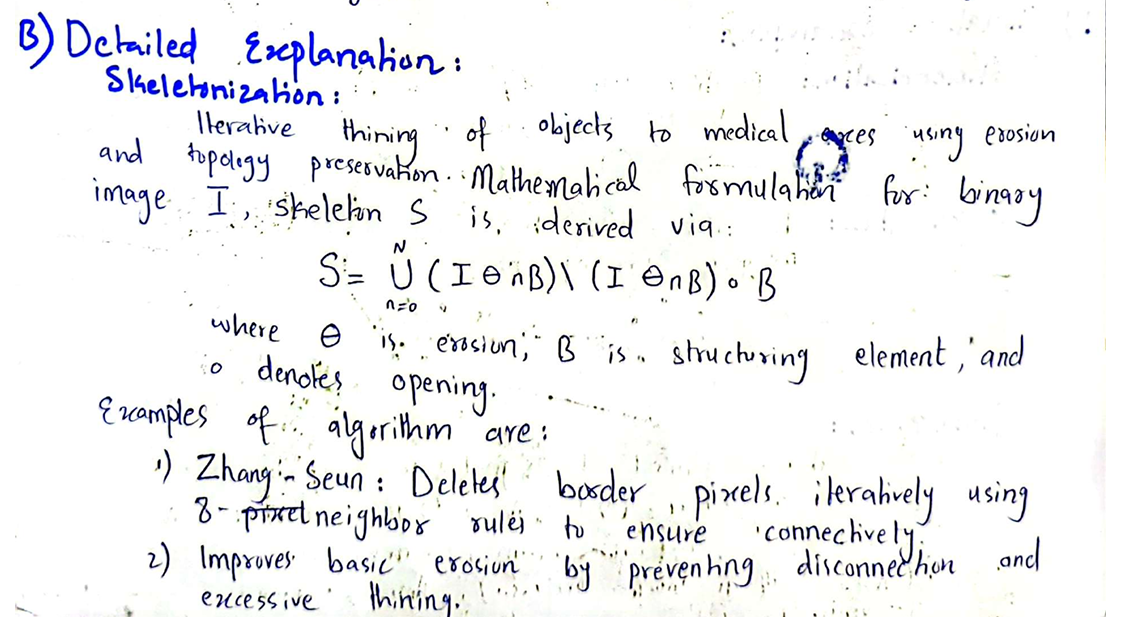 B) Detailed Explanation:
Skeletonization:
Iterative thining of objects to medical axes using erosion
and topology preservation. Mathematical formulation for: binary
image I, skeleton S is derived via:
S = ∪ₙ₌₀ᴺ (I ⊖ nB) \ (I ⊖ nB) ∘ B
where ⊖ is erosion, B is structuring element, and
∘ denotes opening.
Examples of algorithm are:
1) Zhang-Seun: Deletes border pixels iteratively using
8-neighbor rules to ensure connectively.
2) Improves basic erosion by preventing disconnection and
excessive thining.